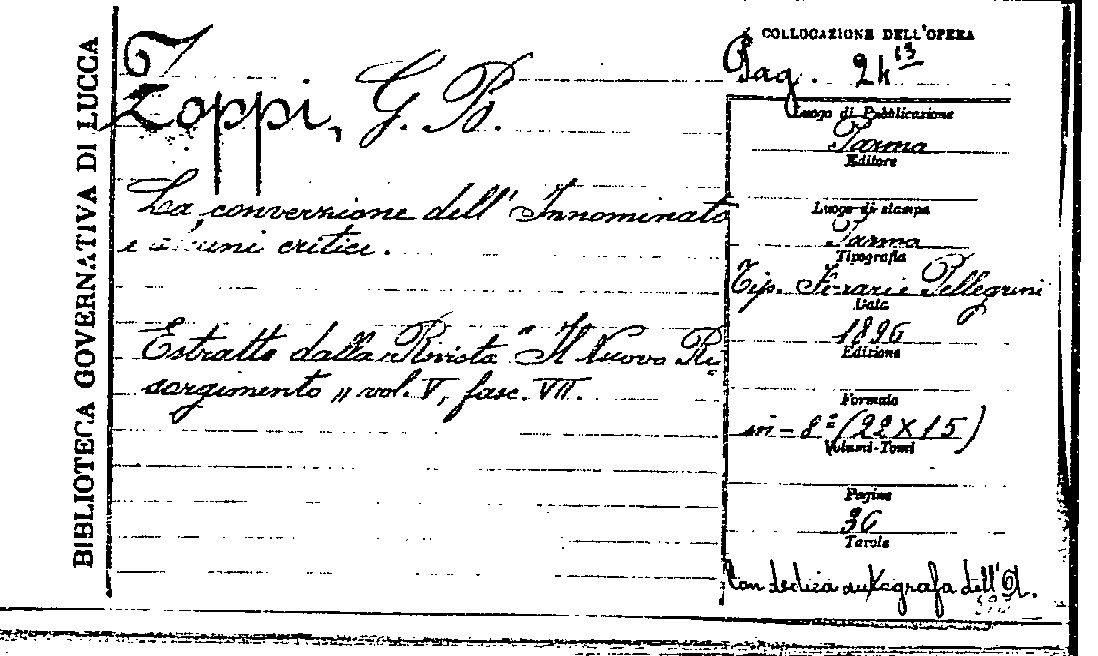 BIBLIOTECA GOVERNATIVA DI LUCCA
Zoppi, G. B.
La conversione dell'Innominato
e alcuni critici.
Estratto dalla Rivista "Il Nuovo Ri-
sorgimento" vol. V, fasc. VII.
COLLOCAZIONE DELL'OPERA
Bag. 24 13
Luogo di Pubblicazione
Parma
Editore
Luogo di stampa
Parma
Tipografia
Tip. Ferrari e Pellegrini
Data
1896
Edizione
Formato
in-8° (22X15)
Volumi-Tomi
Pagine
36
Tavole
Con dedica autografa dell'A.